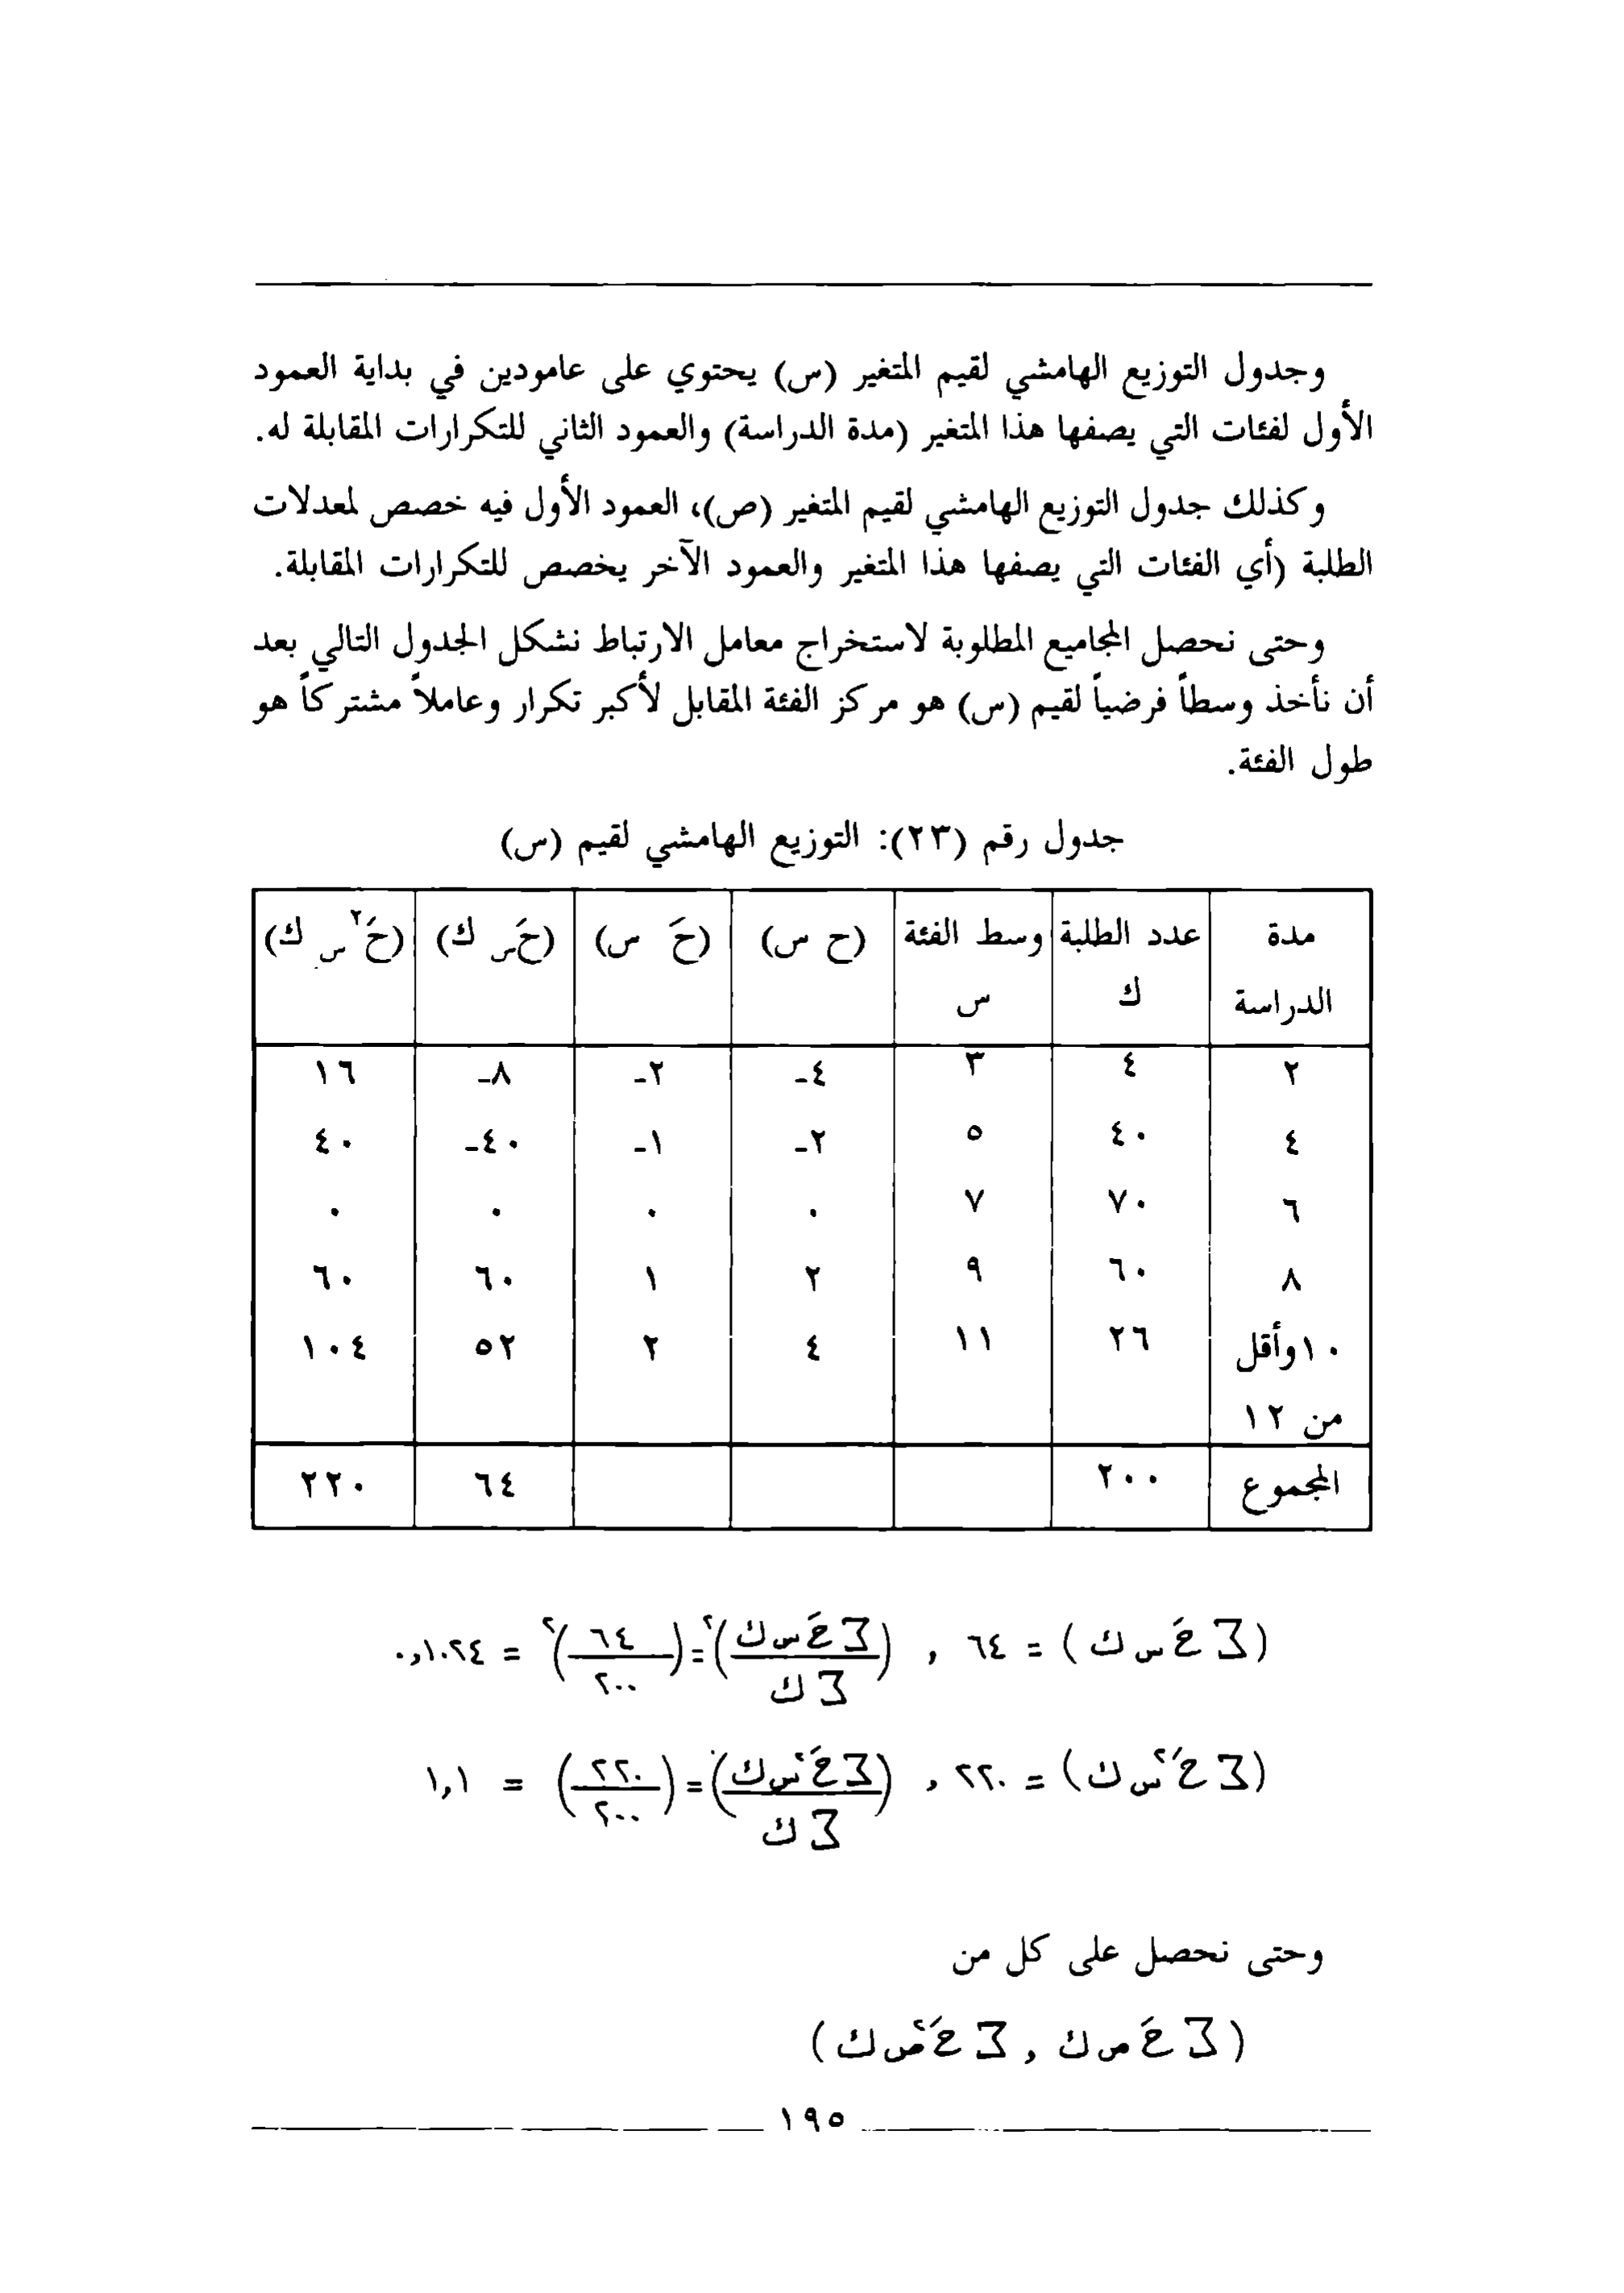 وجدول التوزيع الهامشي لقيم المتغير (س) يحتوي على عامودين في بداية العمود
الأول لفئات التي يصفها هذا المتغير (مدة الدراسة) والعمود الثاني للتكرارات المقابلة له.
وكذلك جدول التوزيع الهامشي لقيم المتغير (ص)، العمود الأول فيه خصص لمعدلات
الطلبة (أي الفئات التي يصفها هذا المتغير والعمود الآخر يخصص للتكرارات المقابلة.
وحتى نحصل المجاميع المطلوبة لاستخراج معامل الارتباط نشكل الجدول التالي بعد
أن نأخذ وسطاً فرضياً لقيم (س) هو مركز الفئة المقابل لأكبر تكرار وعاملاً مشتركاً هو
طول الفئة.
جدول رقم (٢٣): التوزيع الهامشي لقيم (س)
مدة الدراسة | عدد الطلبة ك | وسط الفئة س | (ح س) | (حَ س) | (حَس ك) | (حَ٢ س ك)
٢ | ٤ | ٣ | -٤ | -٢ | -٨ | ١٦
٤ | ٤٠ | ٥ | -٢ | -١ | -٤٠ | ٤٠
٦ | ٧٠ | ٧ | ٠ | ٠ | ٠ | ٠
٨ | ٦٠ | ٩ | ٢ | ١ | ٦٠ | ٦٠
١٠ وأقل من ١٢ | ٢٦ | ١١ | ٤ | ٢ | ٥٢ | ١٠٤
المجموع | ٢٠٠ | | | | ٦٤ | ٢٢٠
(∑ حَ س ك) = ٦٤ , (∑ حَ س ك / ∑ ك)٢ = (٦٤ / ٢٠٠)٢ = ٠,١٠٢٤
(∑ حَ٢ س ك) = ٢٢٠ , (∑ حَ٢ س ك / ∑ ك) = (٢٢٠ / ٢٠٠) = ١,١
وحتى نحصل على كل من
(∑ حَ ص ك , ∑ حَ٢ ص ك)
١٩٥